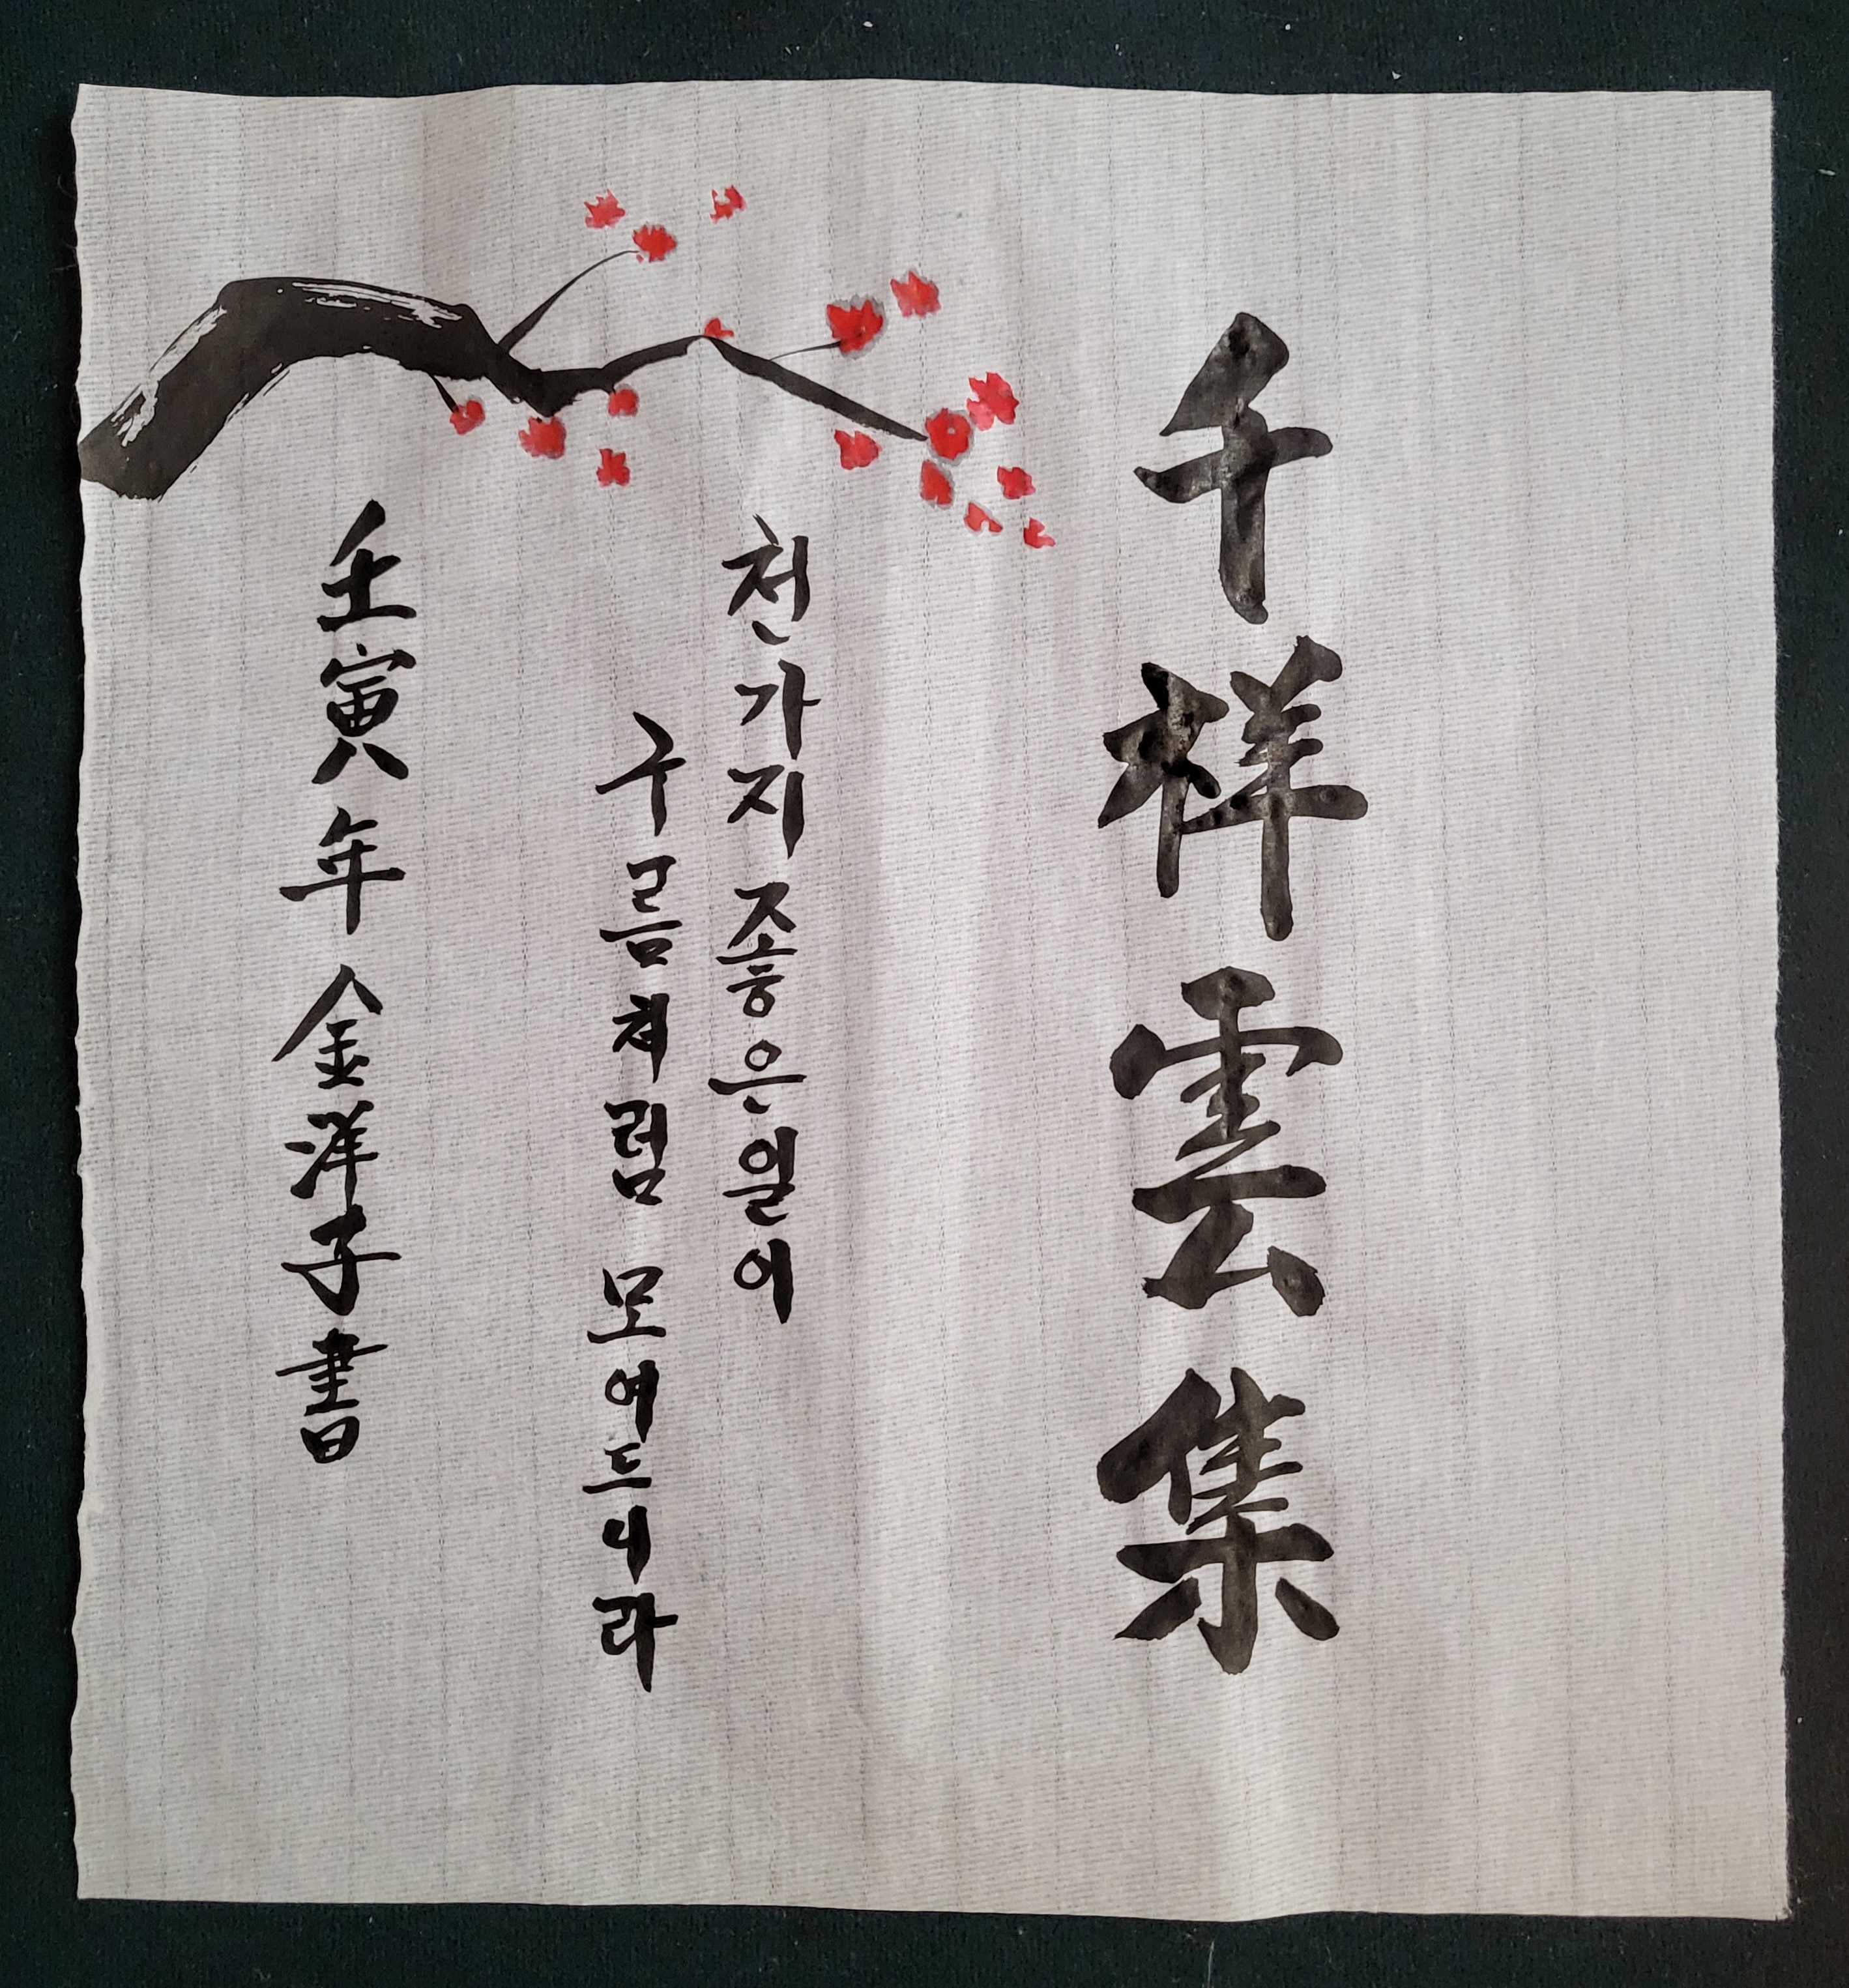 千祥雲集
천가지 좋은일이
구름처럼 모여드니라
壬寅年 金洋子書